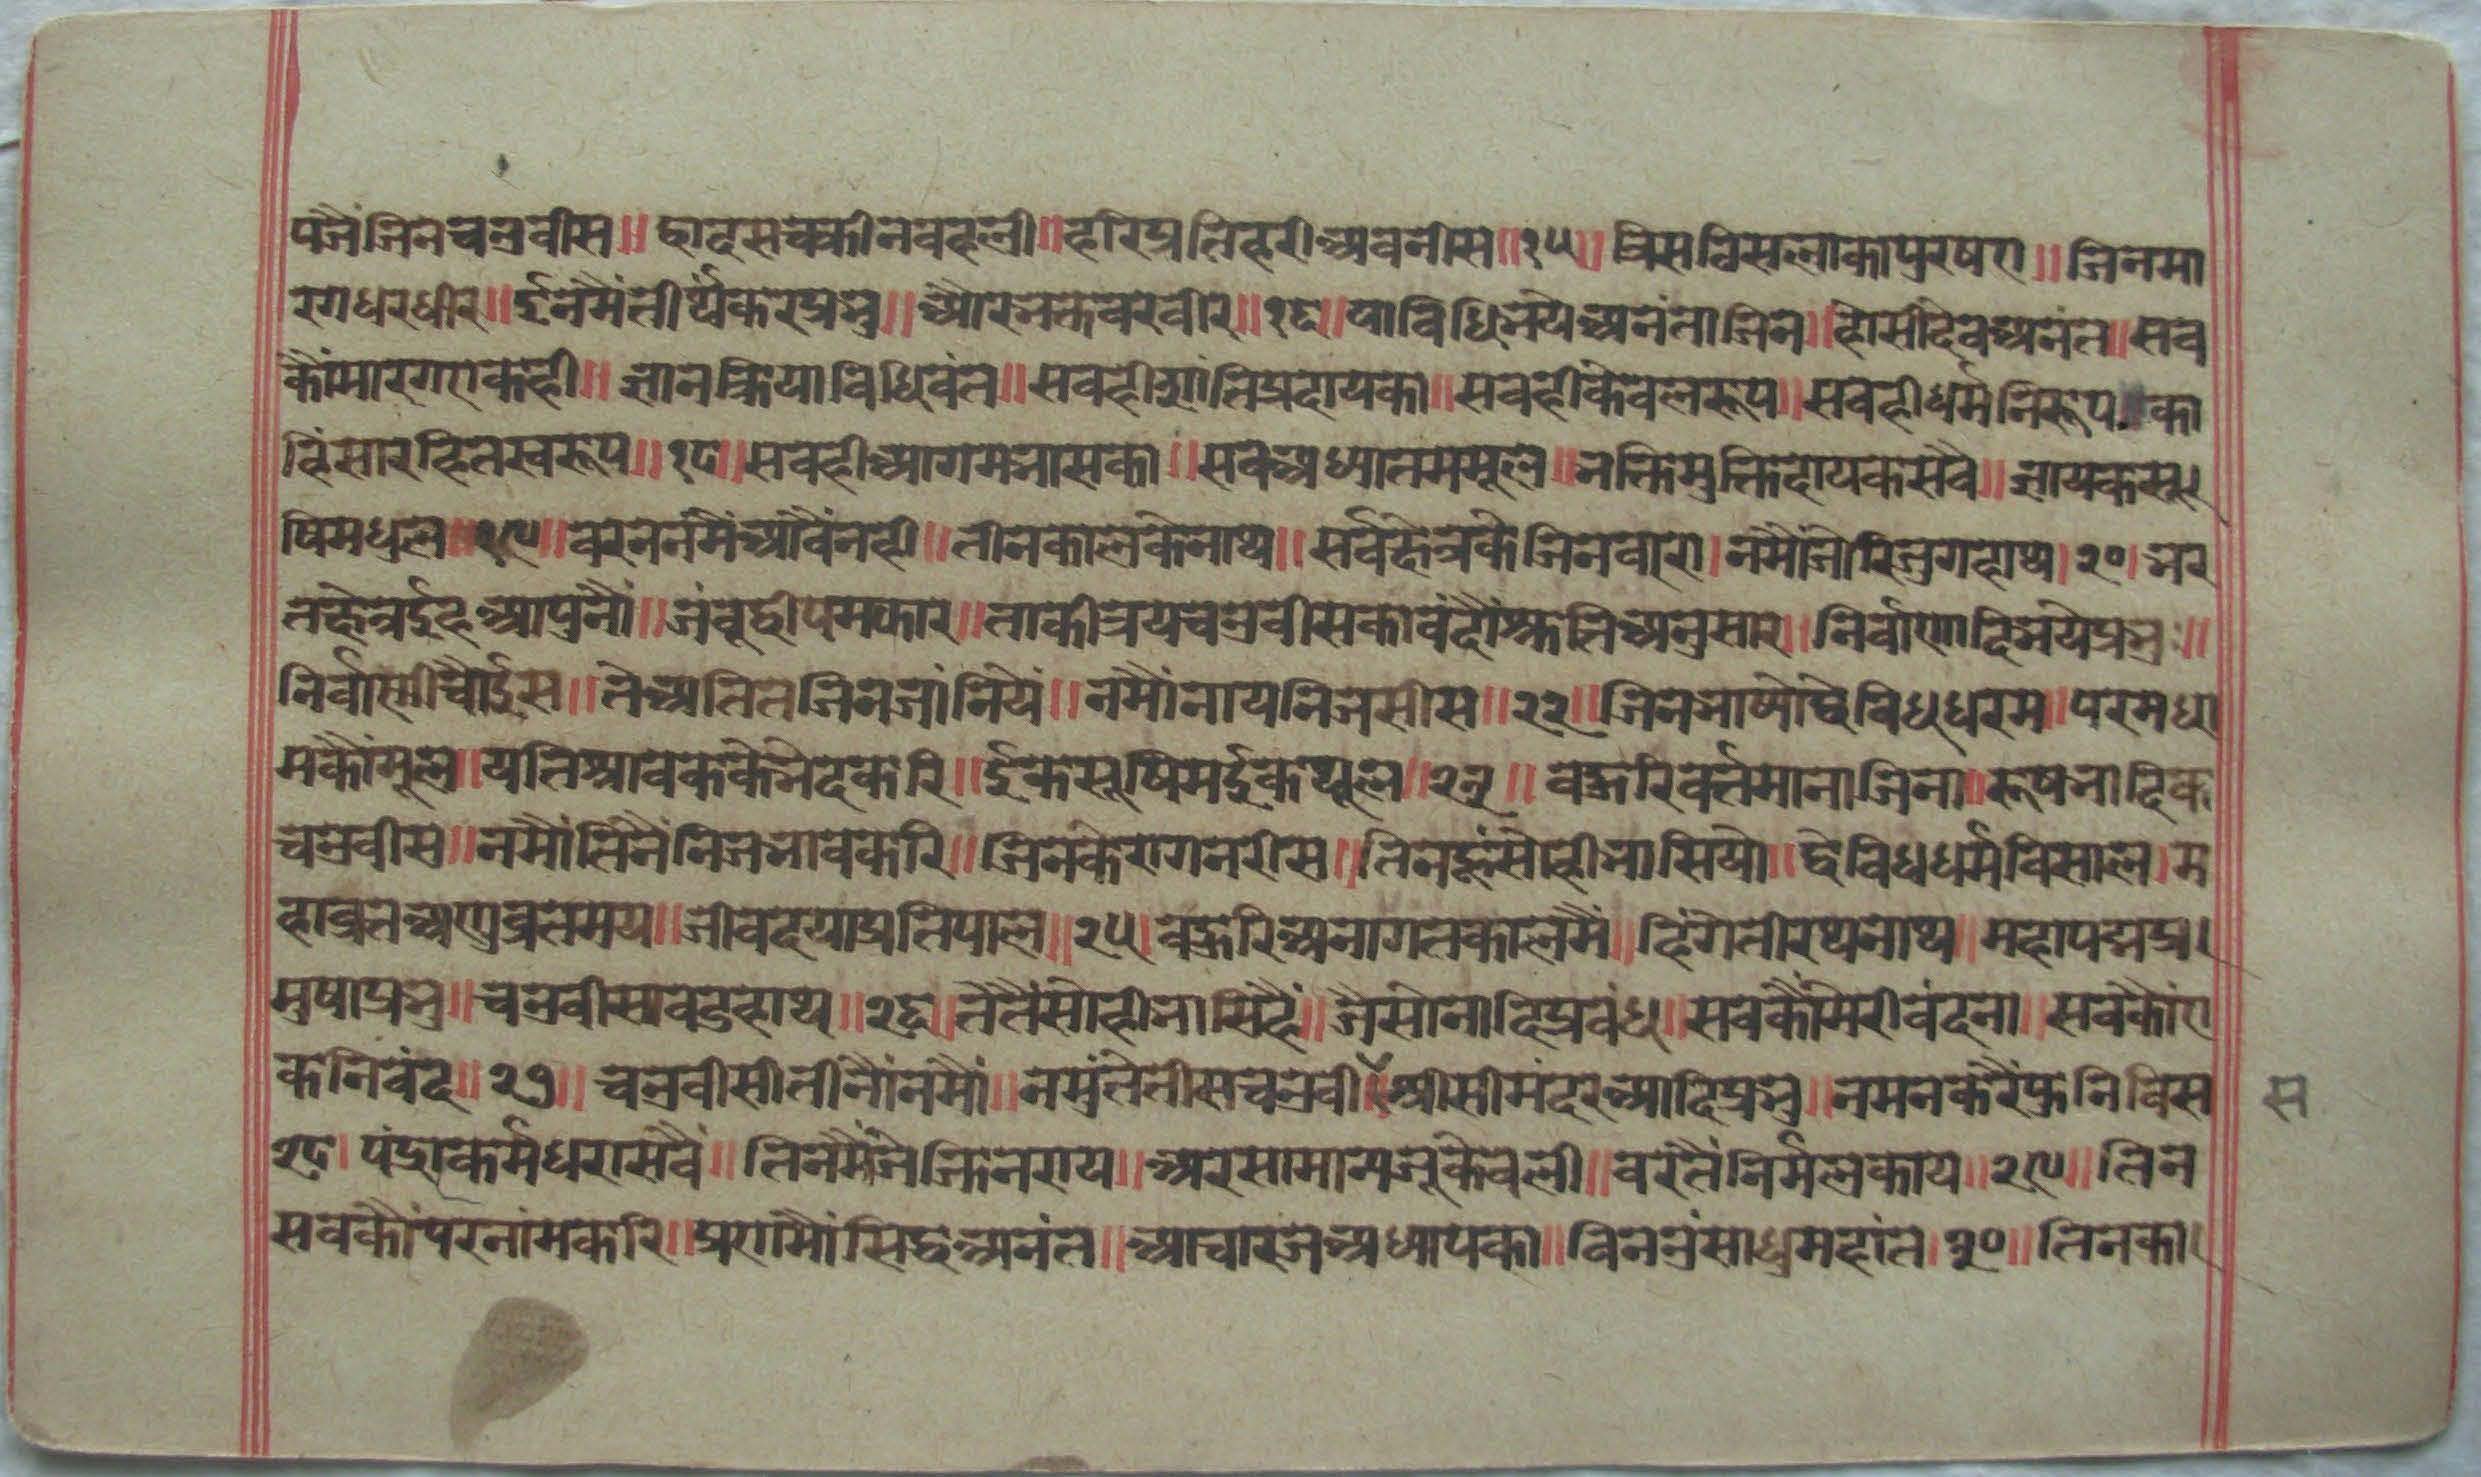 पजैं जिन चउवीस ॥ द्वादस चक्री नव हली ॥ हरि प्रतिहरी अवनीस ॥ १५ ॥ त्रिसठि सलाका पुरष ए ॥ जिनमा
रग धर धीर ॥ इनमैं तीर्थंकर प्रभु ॥ और भक्त वर वीर ॥ १६ ॥ या विधि भये अनंता जिन ॥ होसी देव अनंत ॥ सब
कौं मारग ए कही ॥ ज्ञान क्रिया विधिवंत ॥ सबही शांति प्रदायका ॥ सबही केवल रूप ॥ सबही धर्म निरूपका
हिंसा रहित स्वरूप ॥ १८ ॥ सबही आगम भासका ॥ सब अध्यातम मूल ॥ भक्ति मुक्ति दायक सबै ॥ ज्ञायक सू
षिम थूल ॥ १९ ॥ वरननमैं आवैं नही ॥ तीन काल के नाथ ॥ सर्व क्षेत्र के जिनवरा । नमौं जोरि जुग हाथ । २० । भर
त क्षेत्र इह आपुनौं ॥ जंबूद्वीप मझार ॥ ताकी त्रय चउवीसका वंदौं श्रुति अनुसार ॥ निर्वाणादि भये प्रभु ॥
निर्वाणी चौईस ॥ ते अतित जिन जांनिये ॥ नमौं नाय निज सीस ॥ २२ ॥ जिन भाष्यो द्वै विध धरम ॥ परम धा
मकौं मूल ॥ यति श्रावकके भेद करि ॥ इक सूषिम इक थूल ॥ २३ ॥ बहुरि वर्तमाना जिना ॥ रूषभादिक
चउवीस ॥ नमौं तिनैं निज भाव करि ॥ जिनके राग न रीस ॥ तिनहूं सोही भासियो ॥ द्वै विध धर्म विसाल । म
हाव्रत अणुव्रतमय ॥ जीवदया प्रतिपाल ॥ २५ । बहुरि अनागत कालमैं ॥ हिंगे तीरथनाथ ॥ महापद्म प्र
मुषा प्रभु ॥ चउवीसा वड हाथ ॥ २६ ॥ तेतैं सोही भासिहैं ॥ जैसो नादि प्रबंध ॥ सबकौं मेरी वंदना ॥ सबकौं ए
कनि वंद ॥ २७ ॥ चउवीसी तीनौं नमौं ॥ नमुं तेतीस चउवी ॥ श्री सीमंदर आदि प्रभु ॥ नमन करैं फुनि विस
स
२८ । पंद्रा कर्म धरा सबैं ॥ तिनमैं जे जिनराय ॥ अर सामान्य जू केवली ॥ वरतैं निर्मल काय ॥ २९ ॥ तिन
सबकौं परनांम करि ॥ प्रणमौं सिद्ध अनंत ॥ आचारज अध्यापका ॥ विनउं साध महांत । ३० ॥ तिनका